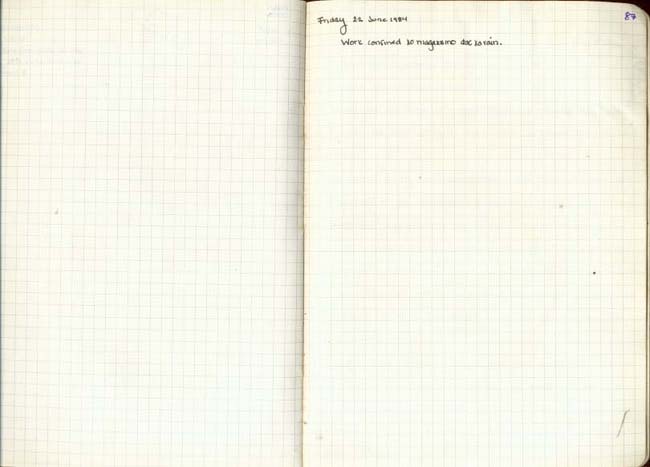 87
Friday 22 June 1984
Work confined to magazzino due to rain.